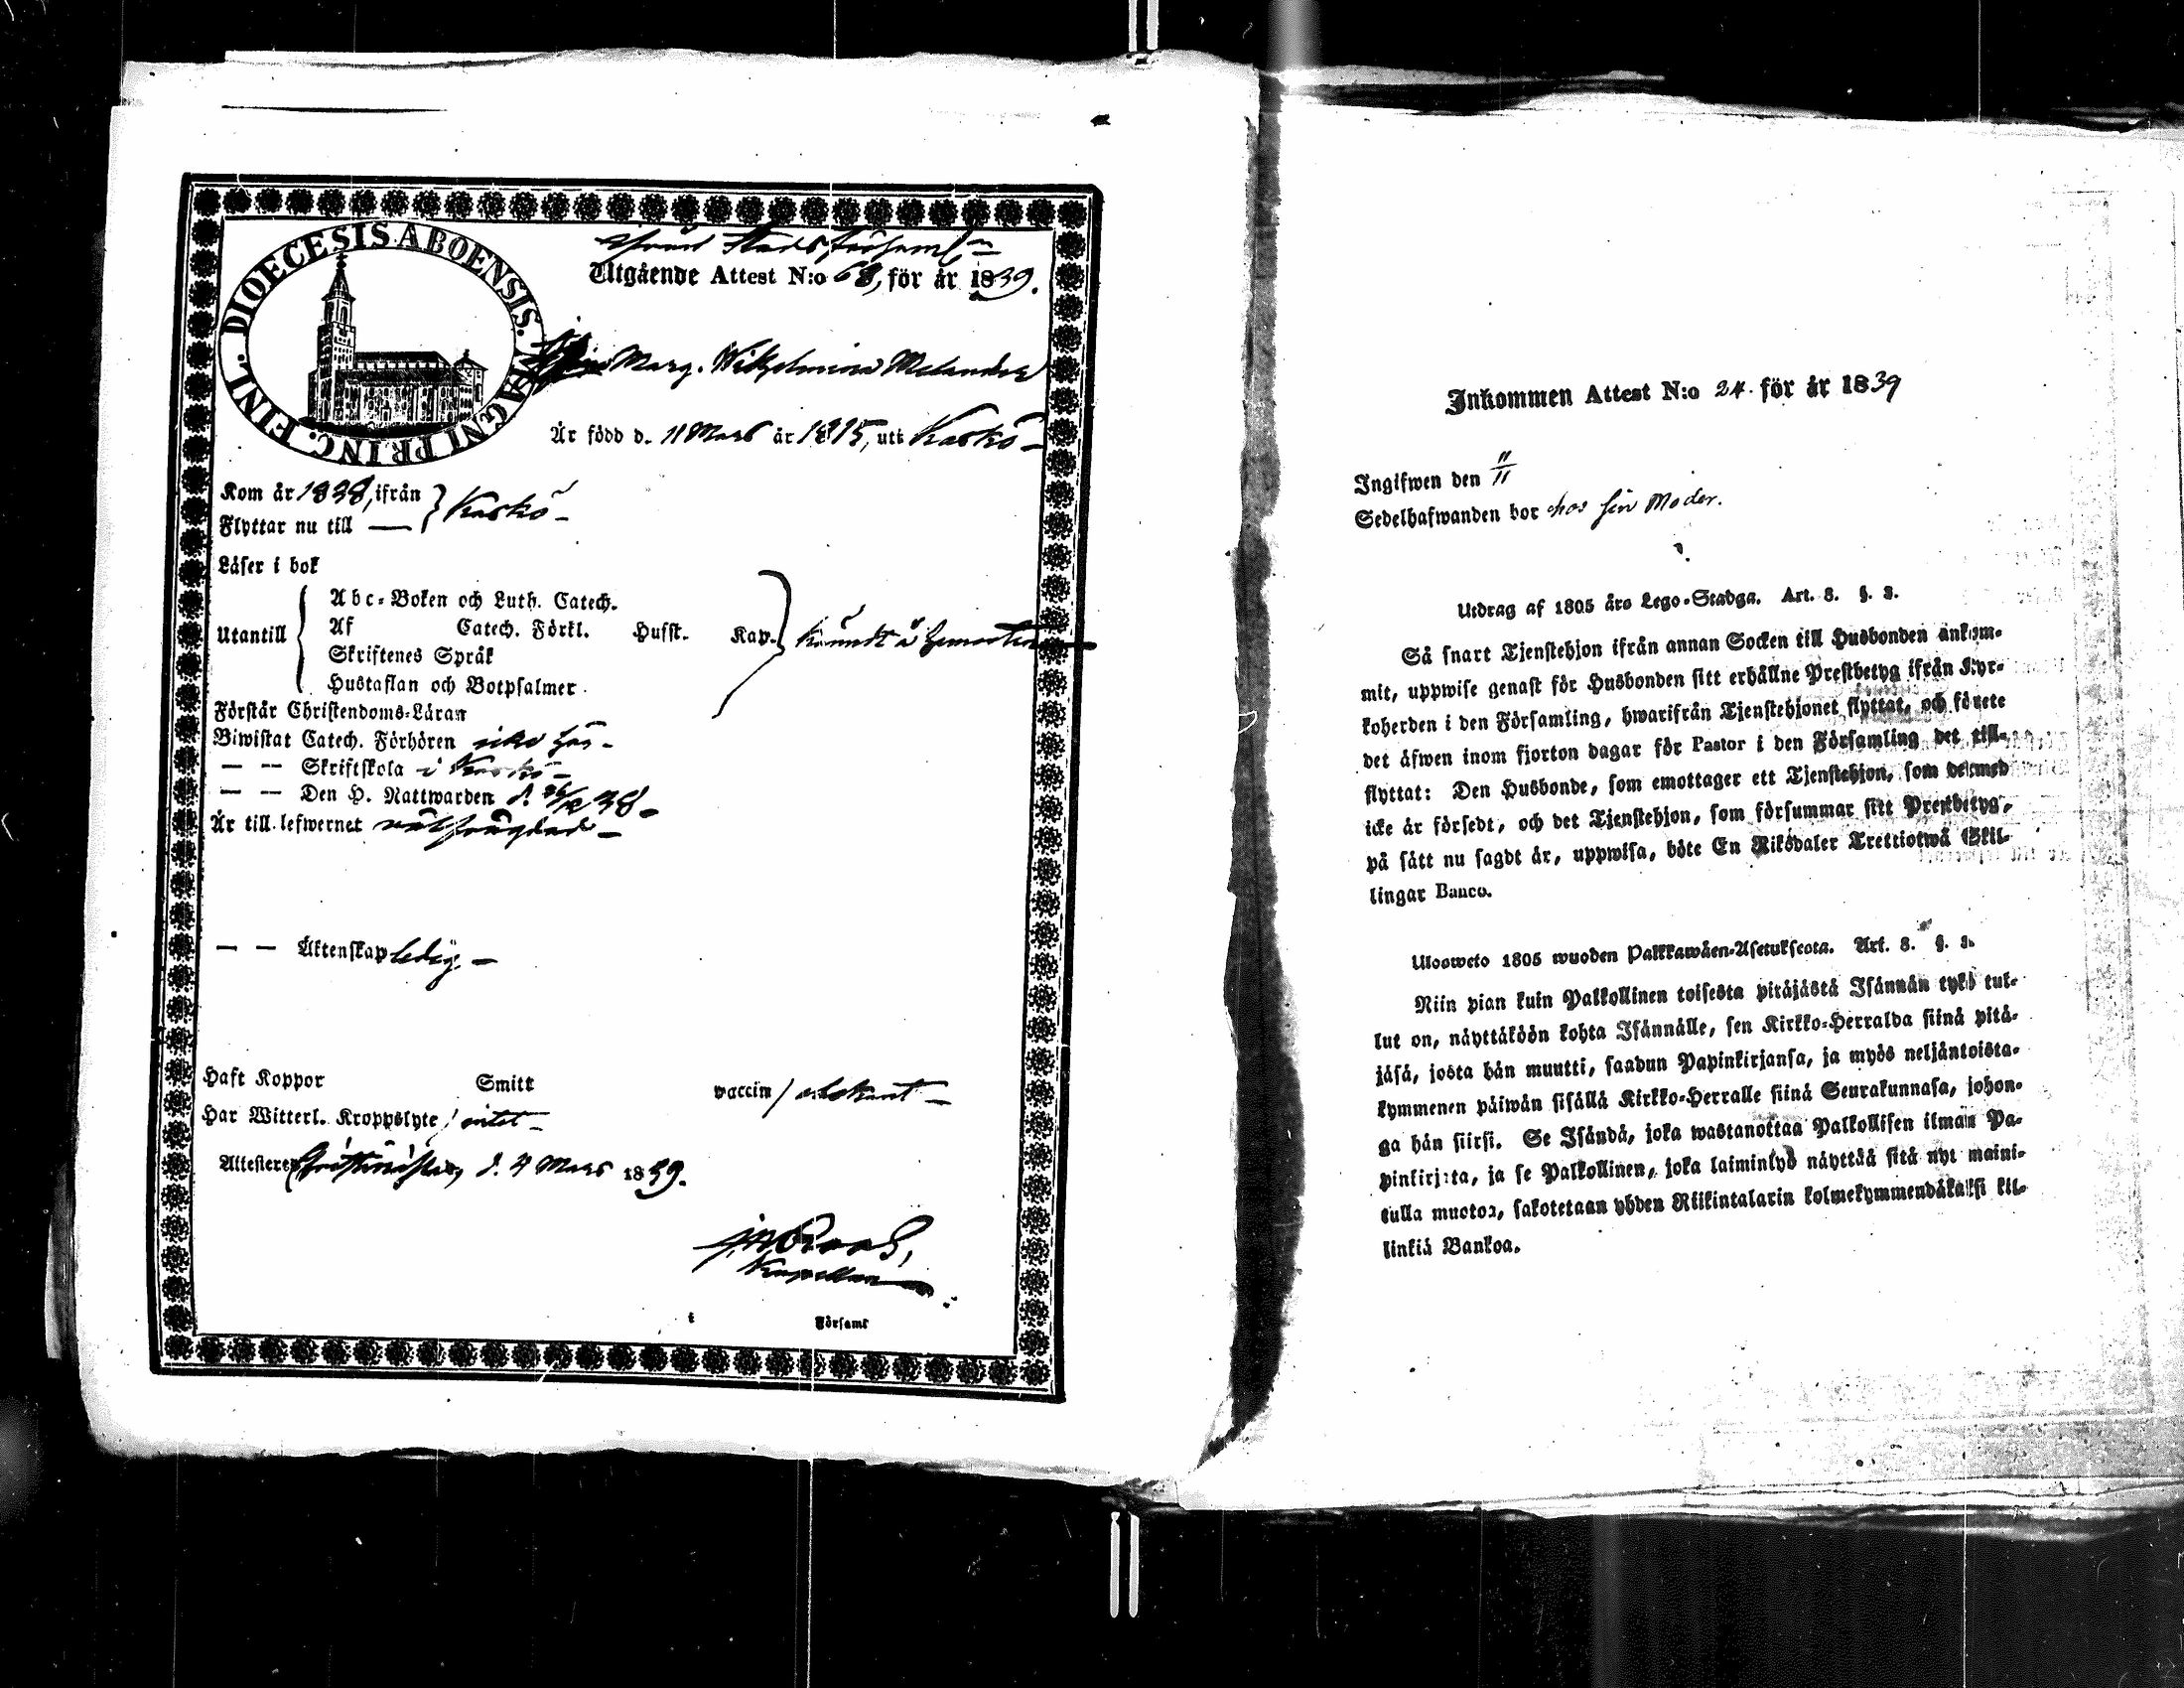 DIOECESIS ABOENSIS. MAGNI PRINC. FINL.
ifrån Stads församl:n
Utgående Attest N:o 68, för år 1839.
Marg. Wilhelmina Melander
Är född d. 11 Mars år 1815, uti Kaskö –
Kom år 1838, ifrån } Kaskö –
Flyttar nu till —
Läser i bok
Utantill { Abc-Boken och Luth. Catech.
Af Catech. Förkl. Husst. Kap.
Skriftenes Språk
Hustaflan och Botpsalmer.
Förstår Christendoms-Läran
Biwistat Catech. Förhören icke här –
— — Skriftskola i Kaskö –
— — Den H. Nattwarden d. 26/12 38 –
Är till lefwernet wälfrägdad –
— — Äktenskap ledig. –
Haft Koppor Smitt vaccin / obekant –
Har Witterl. Kroppslyte / intet –
Attesterer Christinestad, d. 4 Mars 1839.
Kapellan
i Församl
Inkommen Attest N:o 24 för år 1839
Ingifwen den 11/11
Sedelhafwanden bor hos sin Moder.
Utdrag af 1805 års Lego-Stadga. Art. 8. §. 3.
Så snart Tjenstehjon ifrån annan Socken till Husbonden ankom-
mit, uppwise genast för Husbonden sitt erhållne Prestbetyg ifrån Kyr-
koherden i den Församling, hwarifrån Tjenstehjonet flyttat, och förete
det äfwen inom fjorton dagar för Pastor i den Församling det till-
flyttat: Den Husbonde, som emottager ett Tjenstehjon, som dermed
icke är försedt, och det Tjenstehjon, som försummar sitt Prestbetyg,
på sätt nu sagdt är, uppwisa, böte En Riksdaler Trettiotwå Skil-
lingar Banco.
Ulosweto 1805 wuoden Palkkawäen-Asetuksesta. Art. 8. §. 3.
Niin pian kuin Palkollinen toisesta pitäjästä Isännän tykö tul-
lut on, näyttäköön kohta Isännälle, sen Kirkko-Herralda siinä pitä-
jäsä, josta hän muutti, saadun Papinkirjansa, ja myös neljäntoista-
kymmenen päiwän sisällä Kirkko-Herralle siinä Seurakunnasa, johon-
ga hän siirsi. Se Isändä, joka wastanottaa Palkollisen ilman Pa-
pinkirjata, ja se Palkollinen, joka laiminlyö näyttää sitä nyt maini-
tulla muotoa, sakotetaan yhden Riikintalarin kolmekymmendäkaksi kil-
linkiä Bankoa.